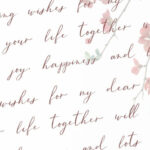 ng wishes for my
your life together w
joy, happiness and
wishes for my dear
life together well
and lots